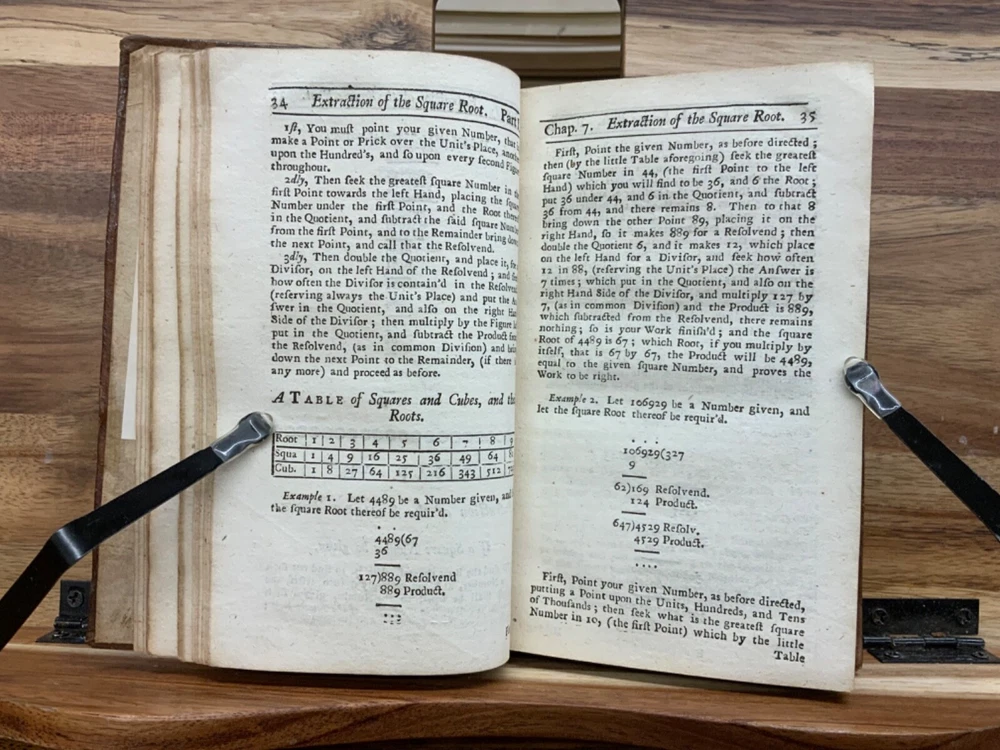 34 Extraction of the Square Root. Part
1ſt, You muſt point your given Number, that
make a Point or Prick over the Unit's Place,
upon the Hundred's, and ſo upon every ſecond
throughout.
2dly, Then ſeek the greateſt ſquare Number in
firſt Point towards the left Hand, placing the
Number under the firſt Point, and the Root
in the Quotient, and ſubtract the ſaid ſquare
from the firſt Point, and to the Remainder bring
the next Point, and call that the Reſolvend.
3dly, Then double the Quotient, and place it,
Diviſor, on the left Hand of the Reſolvend; and
how often the Diviſor is contain'd in the
(reſerving always the Unit's Place) and put the
ſwer in the Quotient, and alſo on the right
Side of the Diviſor; then multiply by the Figure
put in the Quotient, and ſubtract the Product
the Reſolvend, (as in common Diviſion) and
down the next Point to the Remainder, (if there
any more) and proceed as before.
A TABLE of Squares and Cubes, and
Roots.
Root 1 2 3 4 5 6 7 8 9
Squa 1 4 9 16 25 36 49 64
Cub. 1 8 27 64 125 216 343 512
Example 1. Let 4489 be a Number given, and
the ſquare Root thereof be requir'd.
. .
4489(67
36
127)889 Reſolvend
889 Product.
Chap. 7. Extraction of the Square Root. 35
Firſt, Point the given Number, as before directed;
then (by the little Table aforegoing) ſeek the greateſt
ſquare Number in 44, (the firſt Point to the left
Hand) which you will find to be 36, and 6 the Root;
put 36 under 44, and 6 in the Quotient, and ſubtract
36 from 44, and there remains 8. Then to that 8
bring down the other Point 89, placing it on the
right Hand, ſo it makes 889 for a Reſolvend; then
double the Quotient 6, and it makes 12, which place
on the left Hand for a Diviſor, and ſeek how often
12 in 88, (reſerving the Unit's Place) the Anſwer is
7 times; which put in the Quotient, and alſo on the
right Hand Side of the Diviſor, and multiply 127 by
7, (as in common Diviſion) and the Product is 889,
which ſubtracted from the Reſolvend, there remains
nothing; ſo is your Work finiſh'd; and the ſquare
Root of 4489 is 67; which Root, if you multiply by
itſelf, that is 67 by 67, the Product will be 4489,
equal to the given ſquare Number, and proves the
Work to be right.
Example 2. Let 106929 be a Number given, and
let the ſquare Root thereof be requir'd.
. . .
106929(327
9
62)169 Reſolvend.
124 Product.
647)4529 Reſolv.
4529 Product.
. . . .
Firſt, Point your given Number, as before directed,
putting a Point upon the Units, Hundreds, and Tens
of Thouſands; then ſeek what is the greateſt ſquare
Number in 10, (the firſt Point) which by the little
Table